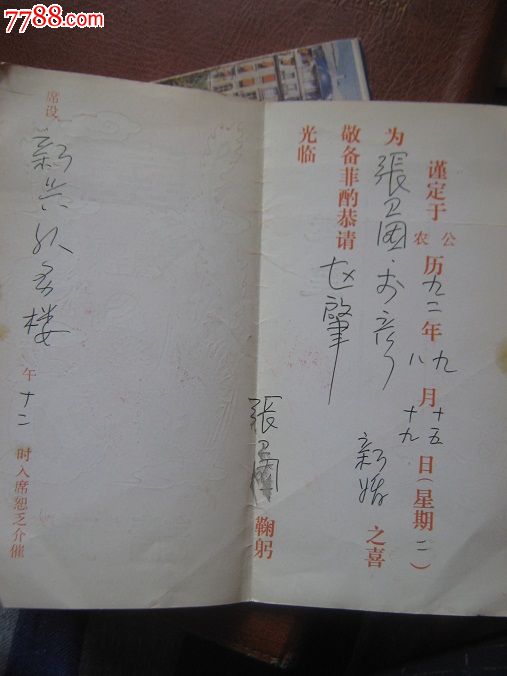 7788.com
中国收藏热线
谨定于公农历九二年九八月十五十九日(星期二)
为張卫國·彦新婚之喜
敬备菲酌恭请赵肇
光临
張卫國鞠躬
席设新兴楼午十二时入席恕乏介催